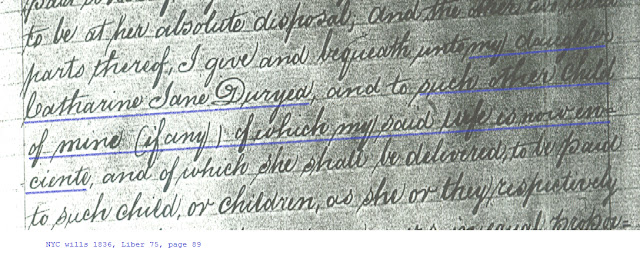 to be at her absolute disposal, and the other
parts thereof, I give and bequeath unto my daughter
Catharine Jane Duryea, and to such other child
of mine (if any) of which my said wife is now en-
ciente, and of which she shall be delivered, to be paid
to such child, or children, as she or they, respectively
equal propor=
NYC wills 1836, Liber 75, page 89